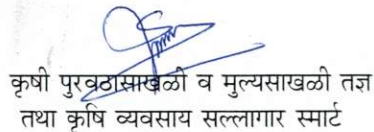 कृषी पुरवठासाखळी व मुल्यसाखळी तज्ञ
तथा कृषि व्यवसाय सल्लागार स्मार्ट